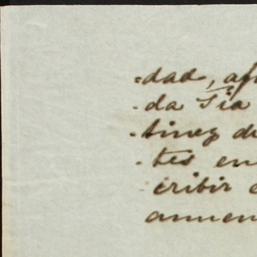 -dad, af
-da Tia
-tinez de
-tes en
-cribir
anuen